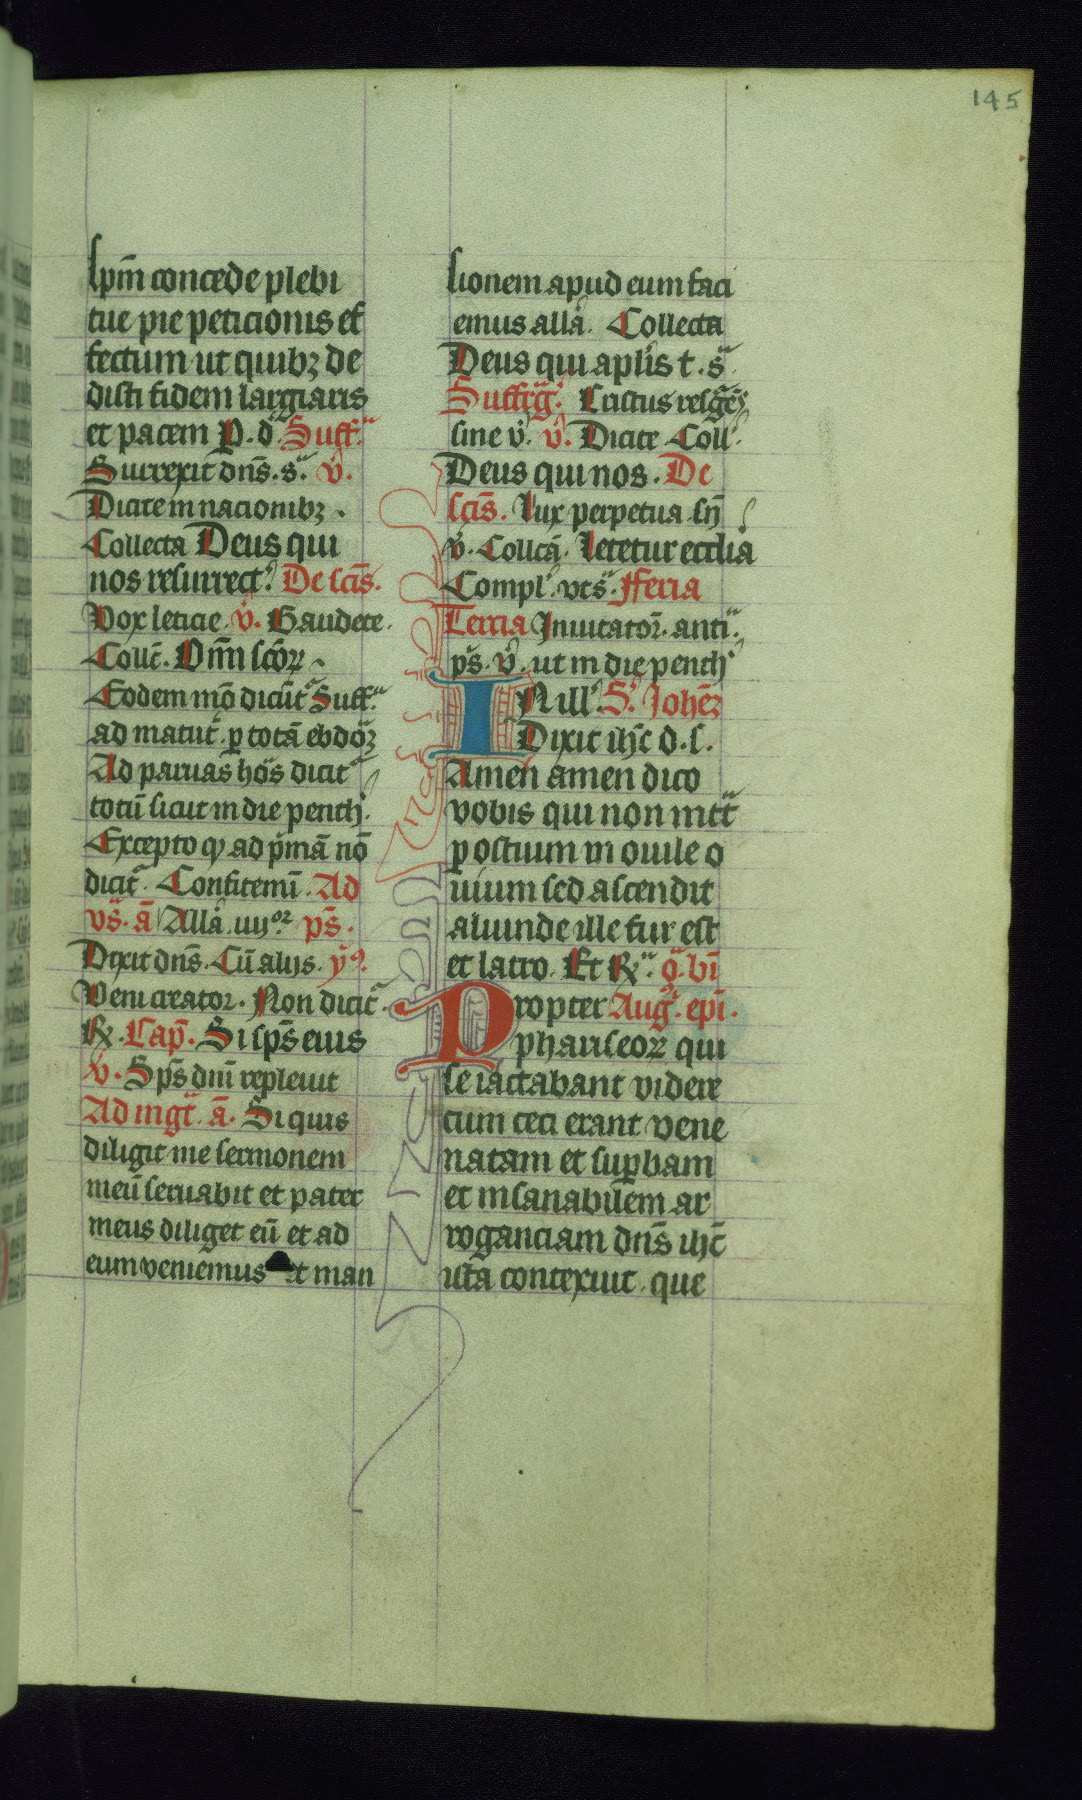 145
spm̄ concede plebi
tue pie peticionis ef
fectum ut quibꝫ de
disti fidem largiaris
et pacem P. d. Suff.
Surrexit dn̄s. s. v̄.
Dicite in nacionibꝫ.
Collecta Deus qui
nos resurrect. De sc̄is.
Vox leticie. v̄. Gaudete.
Coll̄. Om̄ scōꝝ.
Eodem mō dicūt Suff.
ad matut̄. p totā ebdoꝫ
Ad paruas hōs dicit
totū sicut in die penth.
Excepto qꝫ ad pmā nō
dicit̄. Confitemī. Ad
vs̄. ā Allā. iiij.or ps̄.
Dixit dn̄s. Cū alijs. ym̄.
Veni creator. Non dicit̄.
℟. Cap̄. Si sps̄ eius
v̄. Sps̄ dnī repleuit
Ad mgt̄. ā. Si quis
diligit me sermonem
meū seruabit et pater
meus diliget eū et ad
eum veniemus et man
sionem apud eum faci
emus allā. Collecta
Deus qui aplīs t. s.
Suffrg. Cristus resḡes
sine v̄. v̄. Dicite Coll.
Deus qui nos. De
sc̄is. Lux perpetua sn̄
v̄. Collcā. Letetur eccliā
Compl. vts. Fferia
Tercia Inuitator̄. anti.
ps̄. v̄. ut in die penth
IN ill. S. Johēꝫ
Dixit ih̄c d. s.
Amen amen dico
vobis qui non intt
p ostium in ouile o
uium sed ascendit
aliunde ille fur est
et latro. Et ℟. o. bī
Propter Aug. epī.
phariseoꝝ qui
se iactabant videre
cum ceci erant vene
natam et supbam
et insanabilem ar
roganciam dn̄s ih̄c
ista contexuit. que